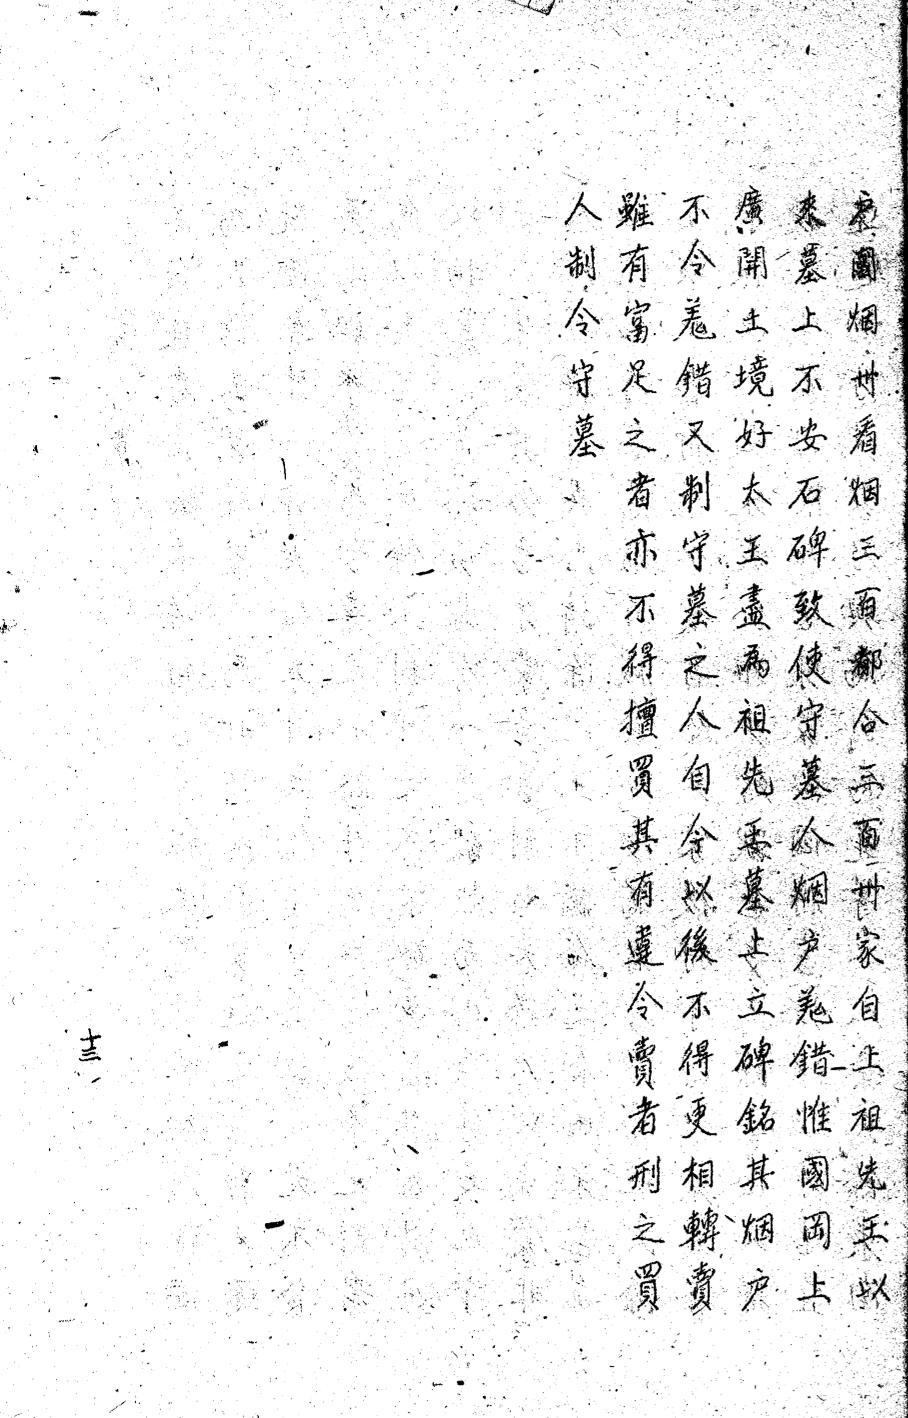 國烟卅看烟三百都合三百卅家自上祖先王以
來墓上不安石碑致使守墓人烟户羌錯惟國岡上
廣開土境好太王盡爲祖先王墓上立碑銘其烟户
不令羌錯又制守墓之人自今以後不得更相轉賣
雖有富足之者亦不得擅買其有違令賣者刑之買
人制令守墓
十三